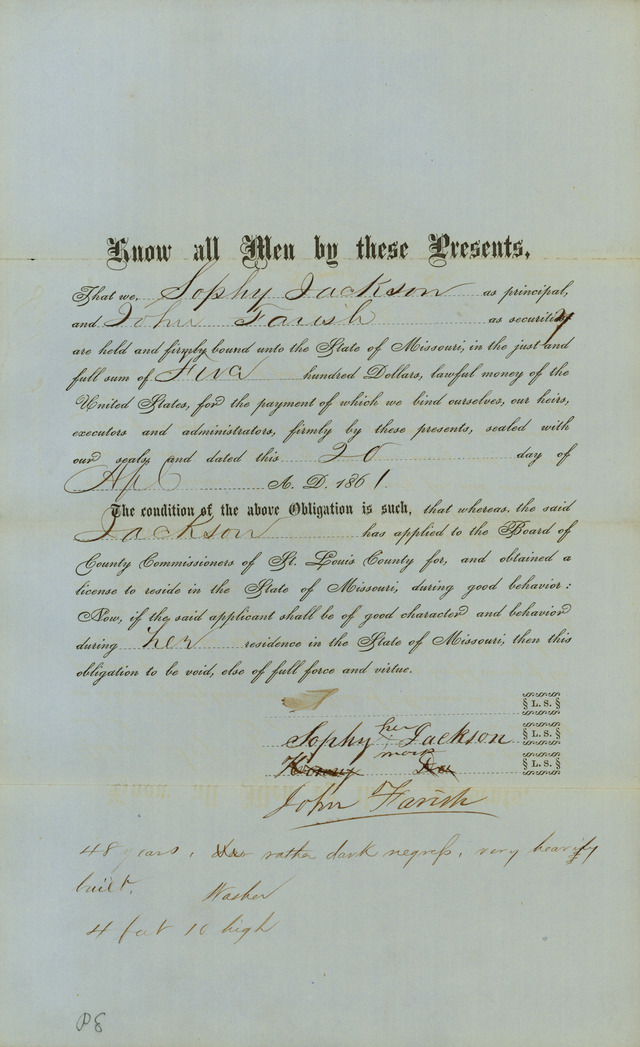 Know all Men by these Presents,
That we, Sophy Jackson as principal,
and John Farish as security
are held and firmly bound unto the State of Missouri, in the just and
full sum of Five hundred Dollars, lawful money of the
United States, for the payment of which we bind ourselves, our heirs,
executors and administrators, firmly by these presents, sealed with
our seals, and dated this 20 day of
Apl A. D. 1861
The condition of the above Obligation is such, that whereas, the said
Jackson has applied to the Board of
County Commissioners of St. Louis County for, and obtained a
license to reside in the State of Missouri, during good behavior:
Now, if the said applicant shall be of good character and behavior
during her residence in the State of Missouri, then this
obligation to be void, else of full force and virtue.
L. S.
her
Sophy Jackson L. S.
mark
L. S.
John Farish
48 years, rather dark negress, very heavily
built. Washer
4 feet 10 high
P8